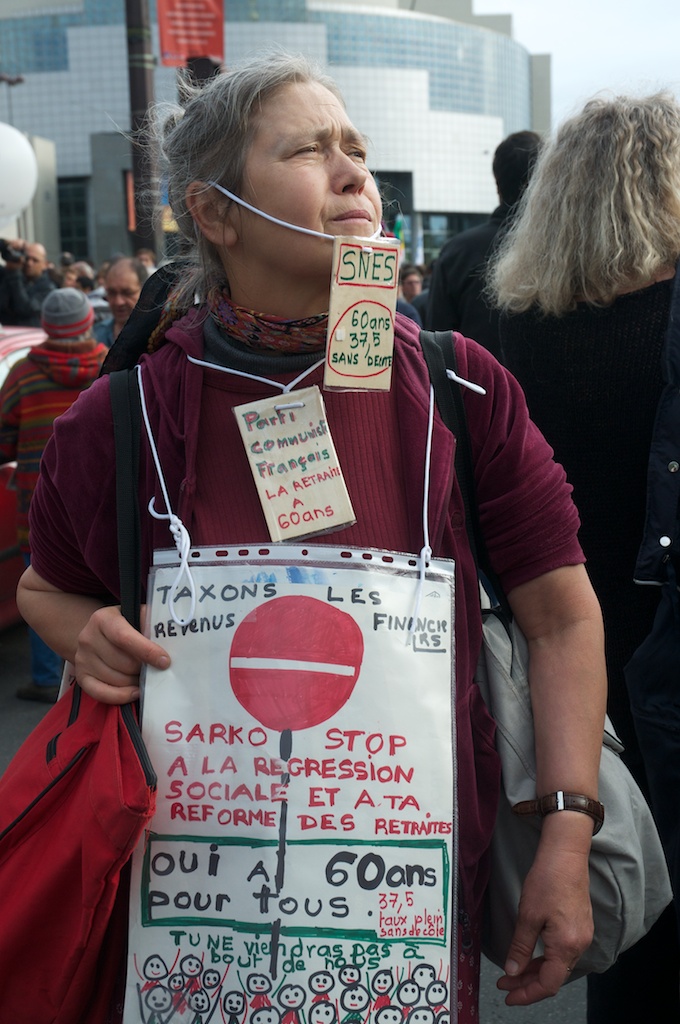 SNES
60ans
37,5
SANS DECOTE
Parti
communist
Français
LA RETRAITE
A
60ans
TAXONS LES
REVENUS FINANCIERS
SARKO STOP
A LA REGRESSION
SOCIALE ET A TA
REFORME DES RETRAITES
OUI A 60ans
POUR TOUS.
37,5
taux plein
sans décote
TU NE viendras pas à
bout de nous